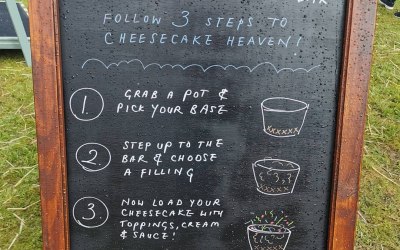 FOLLOW 3 STEPS TO
CHEESECAKE HEAVEN!
1.
GRAB A POT &
PICK YOUR BASE
2.
STEP UP TO THE
BAR & CHOOSE
A FILLING
3.
NOW LOAD YOUR
CHEESECAKE WITH
TOPPINGS, CREAM
& SAUCE!